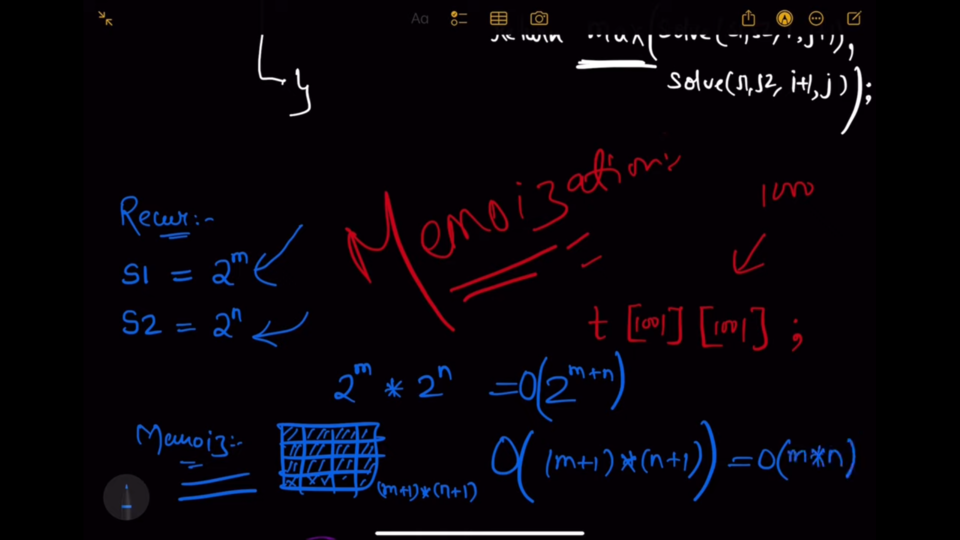 Aa
return max(Solve(s1,s2,i,j+1),
Solve(s1,s2,i+1,j));
Memoization:
1000
Recur:-
S1 = 2^m
S2 = 2^n
t[1001][1001];
2^m * 2^n = O(2^m+n)
Memoiz:-
(m+1)*(n+1)
O((m+1)*(n+1)) = O(m*n)